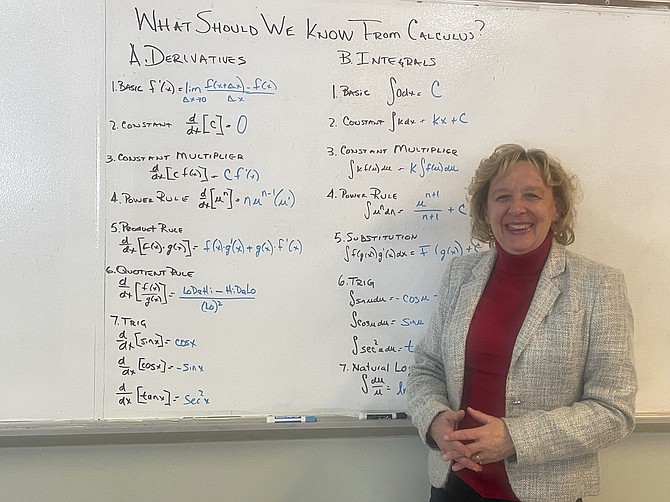 WHAT SHOULD WE KNOW FROM CALCULUS?
A. DERIVATIVES
1. BASIC f'(x) = lim Δx→0 f(x+Δx) - f(x) / Δx
2. CONSTANT d/dx [c] = 0
3. CONSTANT MULTIPLIER
d/dx [c f(x)] = c f'(x)
4. POWER RULE d/dx [u^n] = n u^(n-1) (u')
5. PRODUCT RULE
d/dx [f(x)·g(x)] = f(x)·g'(x) + g(x)·f'(x)
6. QUOTIENT RULE
d/dx [f(x)/g(x)] = LoDeHi - HiDeLo / (Lo)²
7. TRIG
d/dx [sinx] = cosx
d/dx [cosx] = -sinx
d/dx [tanx] = sec²x
B. INTEGRALS
1. BASIC ∫0dx = C
2. CONSTANT ∫kdx = kx + C
3. CONSTANT MULTIPLIER
∫k f(u) du = k∫f(u) du
4. POWER RULE
∫u^n du = u^(n+1) / n+1 + C
5. SUBSTITUTION
∫f(g(x))g'(x)dx = F(g(x)) + C
6. TRIG
∫sinu du = -cosu
∫cosu du = sinu
∫sec²u du = t
7. NATURAL LO
∫du/u = ln